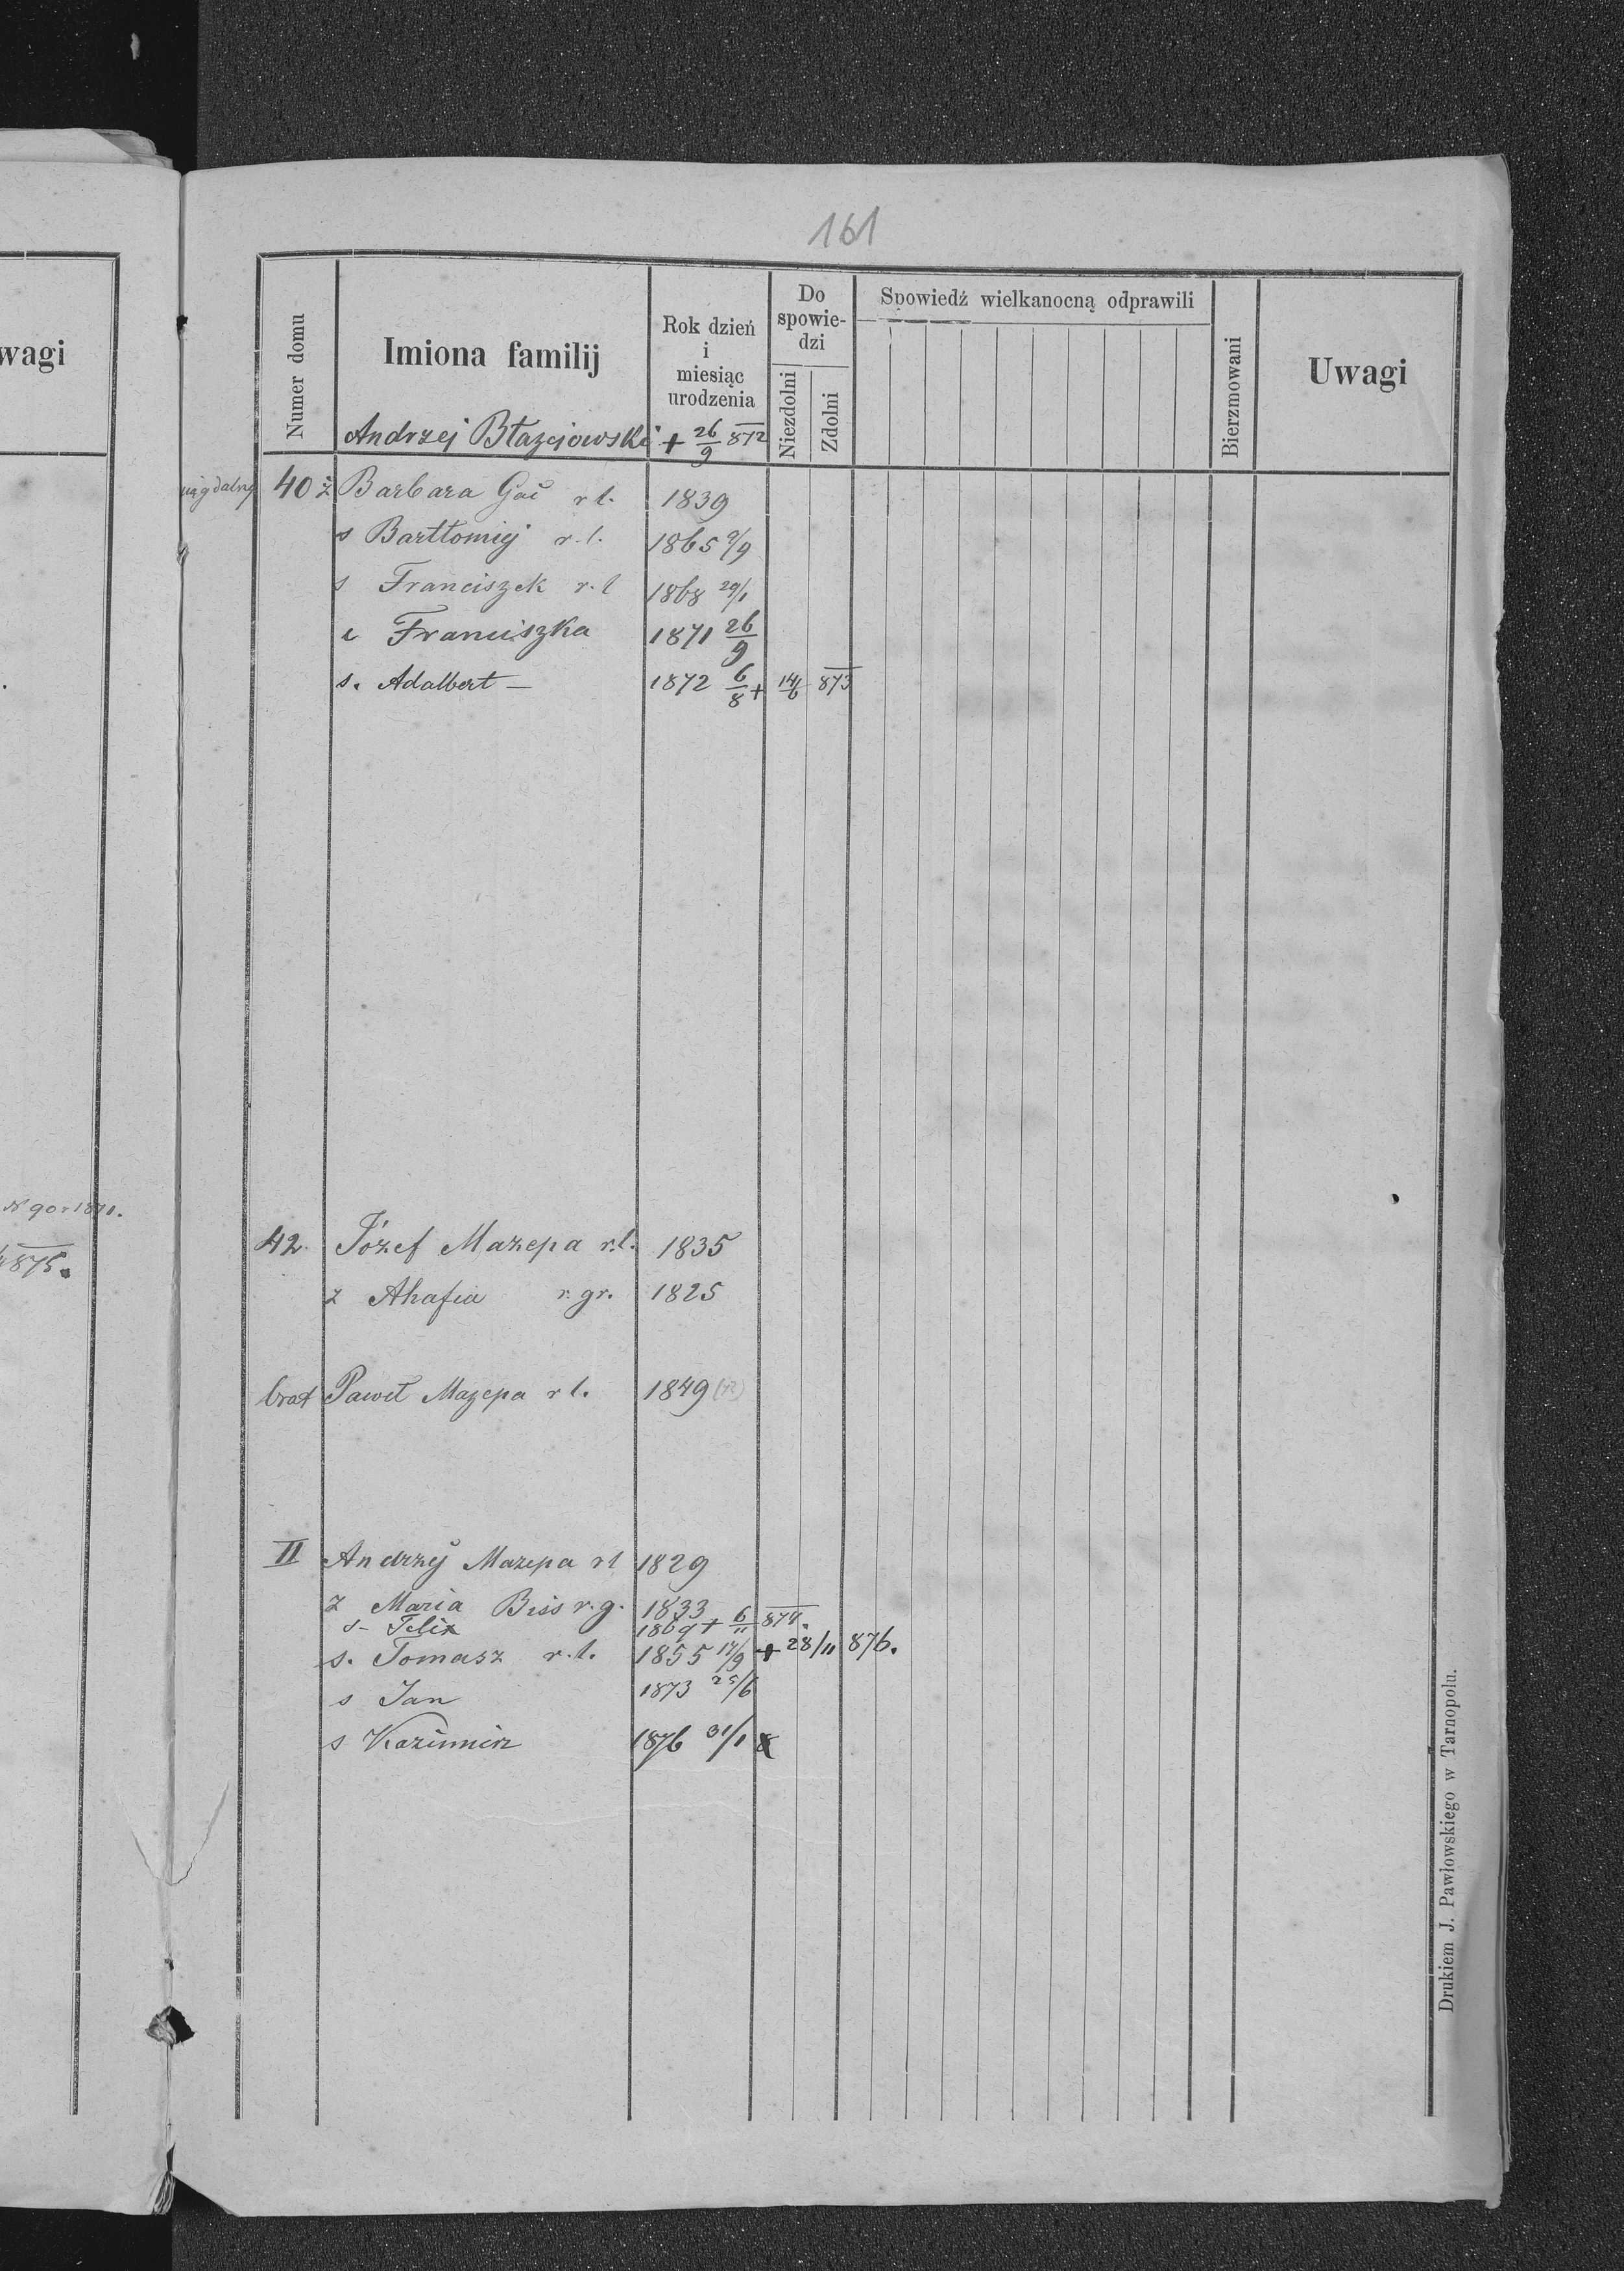 161
wagi
Numer domu
Imiona familij
Rok dzień
i
miesiąc
urodzenia
Do
spowie-
dzi
Niezdolni
Zdolni
Spowiedź wielkanocną odprawili
Bierzmowani
Uwagi
Andrzej Błazejowski + 26/9 872
40 ż Barbara Gać r l. 1839
s Bartłomiej r. l. 1865 9/9
s Franciszek r. l 1868 29/1
c Franciszka 1871 26/9
s. Adalbert — 1872 6/8 + 14/6 873
90 1871.
875.
42 Józef Mazepa r. l. 1835
z Ahafia r. gr. 1825
brat Paweł Mazepa r l. 1849
II Andrzej Mazepa r l 1829
z Maria Biss r. g. 1833
s- Felix 1869 + 6/11 874.
s. Tomasz r. l. 1855 17/9 + 28/11 876.
s Jan 1873 25/6
s Kazimierz 1876 31/1
Drukiem J. Pawłowskiego w Tarnopolu.